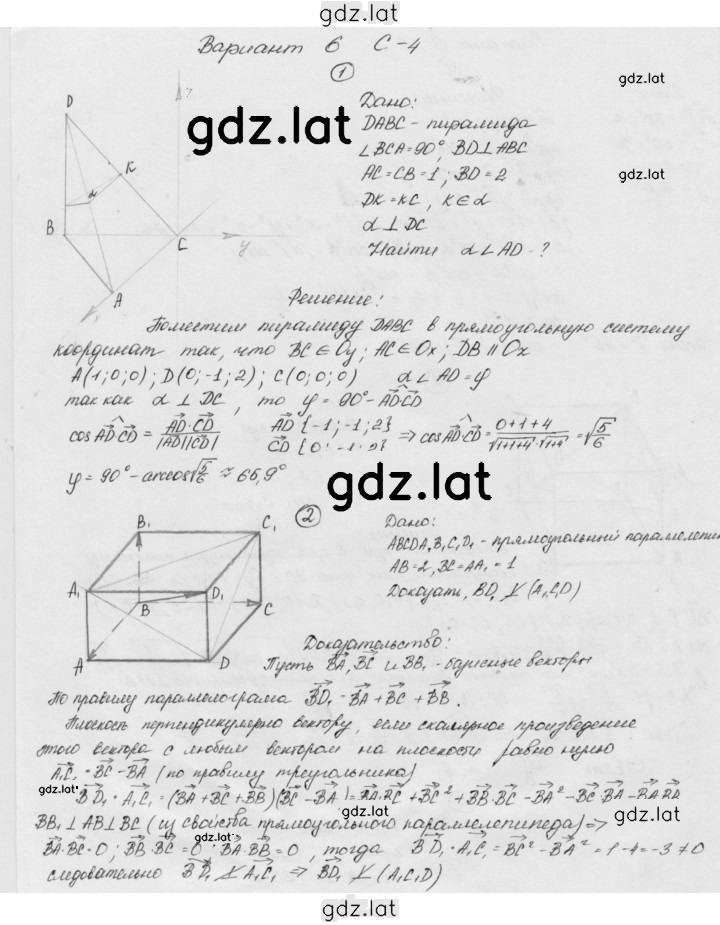 gdz.lat
Вариант 6 С-4
1
gdz.lat
Дано:
DABC - пирамида
∠BCA=90°, BD⊥ABC
AC=CB=1; BD=2
DK=KC, K∈α
α⊥DC
Найти α∠AD-?
gdz.lat
gdz.lat
D
K
α
B
C
y
A
Решение:
Поместим пирамиду DABC в прямоугольную систему
координат так, что BC∈Oy; AC∈Ox; DB∥Ox
A(1;0;0); D(0;-1;2); C(0;0;0) α∠AD=φ
так как α⊥DC, то φ=90°-AD^CD
cosAD^CD = AD·CD / |AD||CD| AD{-1;-1;2} CD{0;-1;2} ⇒ cosAD^CD = 0+1+4 / √1+1+4·√1+4 = √5/6
φ=90°-arccos√5/6 ≈ 65,9°
gdz.lat
2
B₁
C₁
A₁
D₁
B
C
A
D
Дано:
ABCDA₁B₁C₁D₁ - прямоугольный параллелепип
AB=2, BC=AA₁=1
Доказать, BD₁ ⊥̸ (A₁C₁D)
Доказательство:
Пусть BA, BC и BB₁ - базисные векторы
По правилу параллелограма BD₁ = BA+BC+BB₁.
Плоскость перпендикулярно вектору, если скалярное произведение
этого вектора с любым вектором на плоскости равно нулю
A₁C₁ = BC-BA (по правилу треугольника)
gdz.lat
BD₁·A₁C₁=(BA+BC+BB₁)(BC-BA)=BA·BC+BC²+BB₁·BC-BA²-BC·BA-BA·BA
BB₁⊥AB⊥BC (из свойства прямоугольного параллелепипеда)⇒
gdz.lat
gdz.lat
BA·BC=0; BB·BC=0; BA·BB₁=0, тогда BD₁·A₁C₁=BC²-BA²=1-4=-3≠0
следовательно BD₁ ⊥̸ A₁C₁ ⇒ BD₁ ⊥̸ (A₁C₁D)
gdz.lat